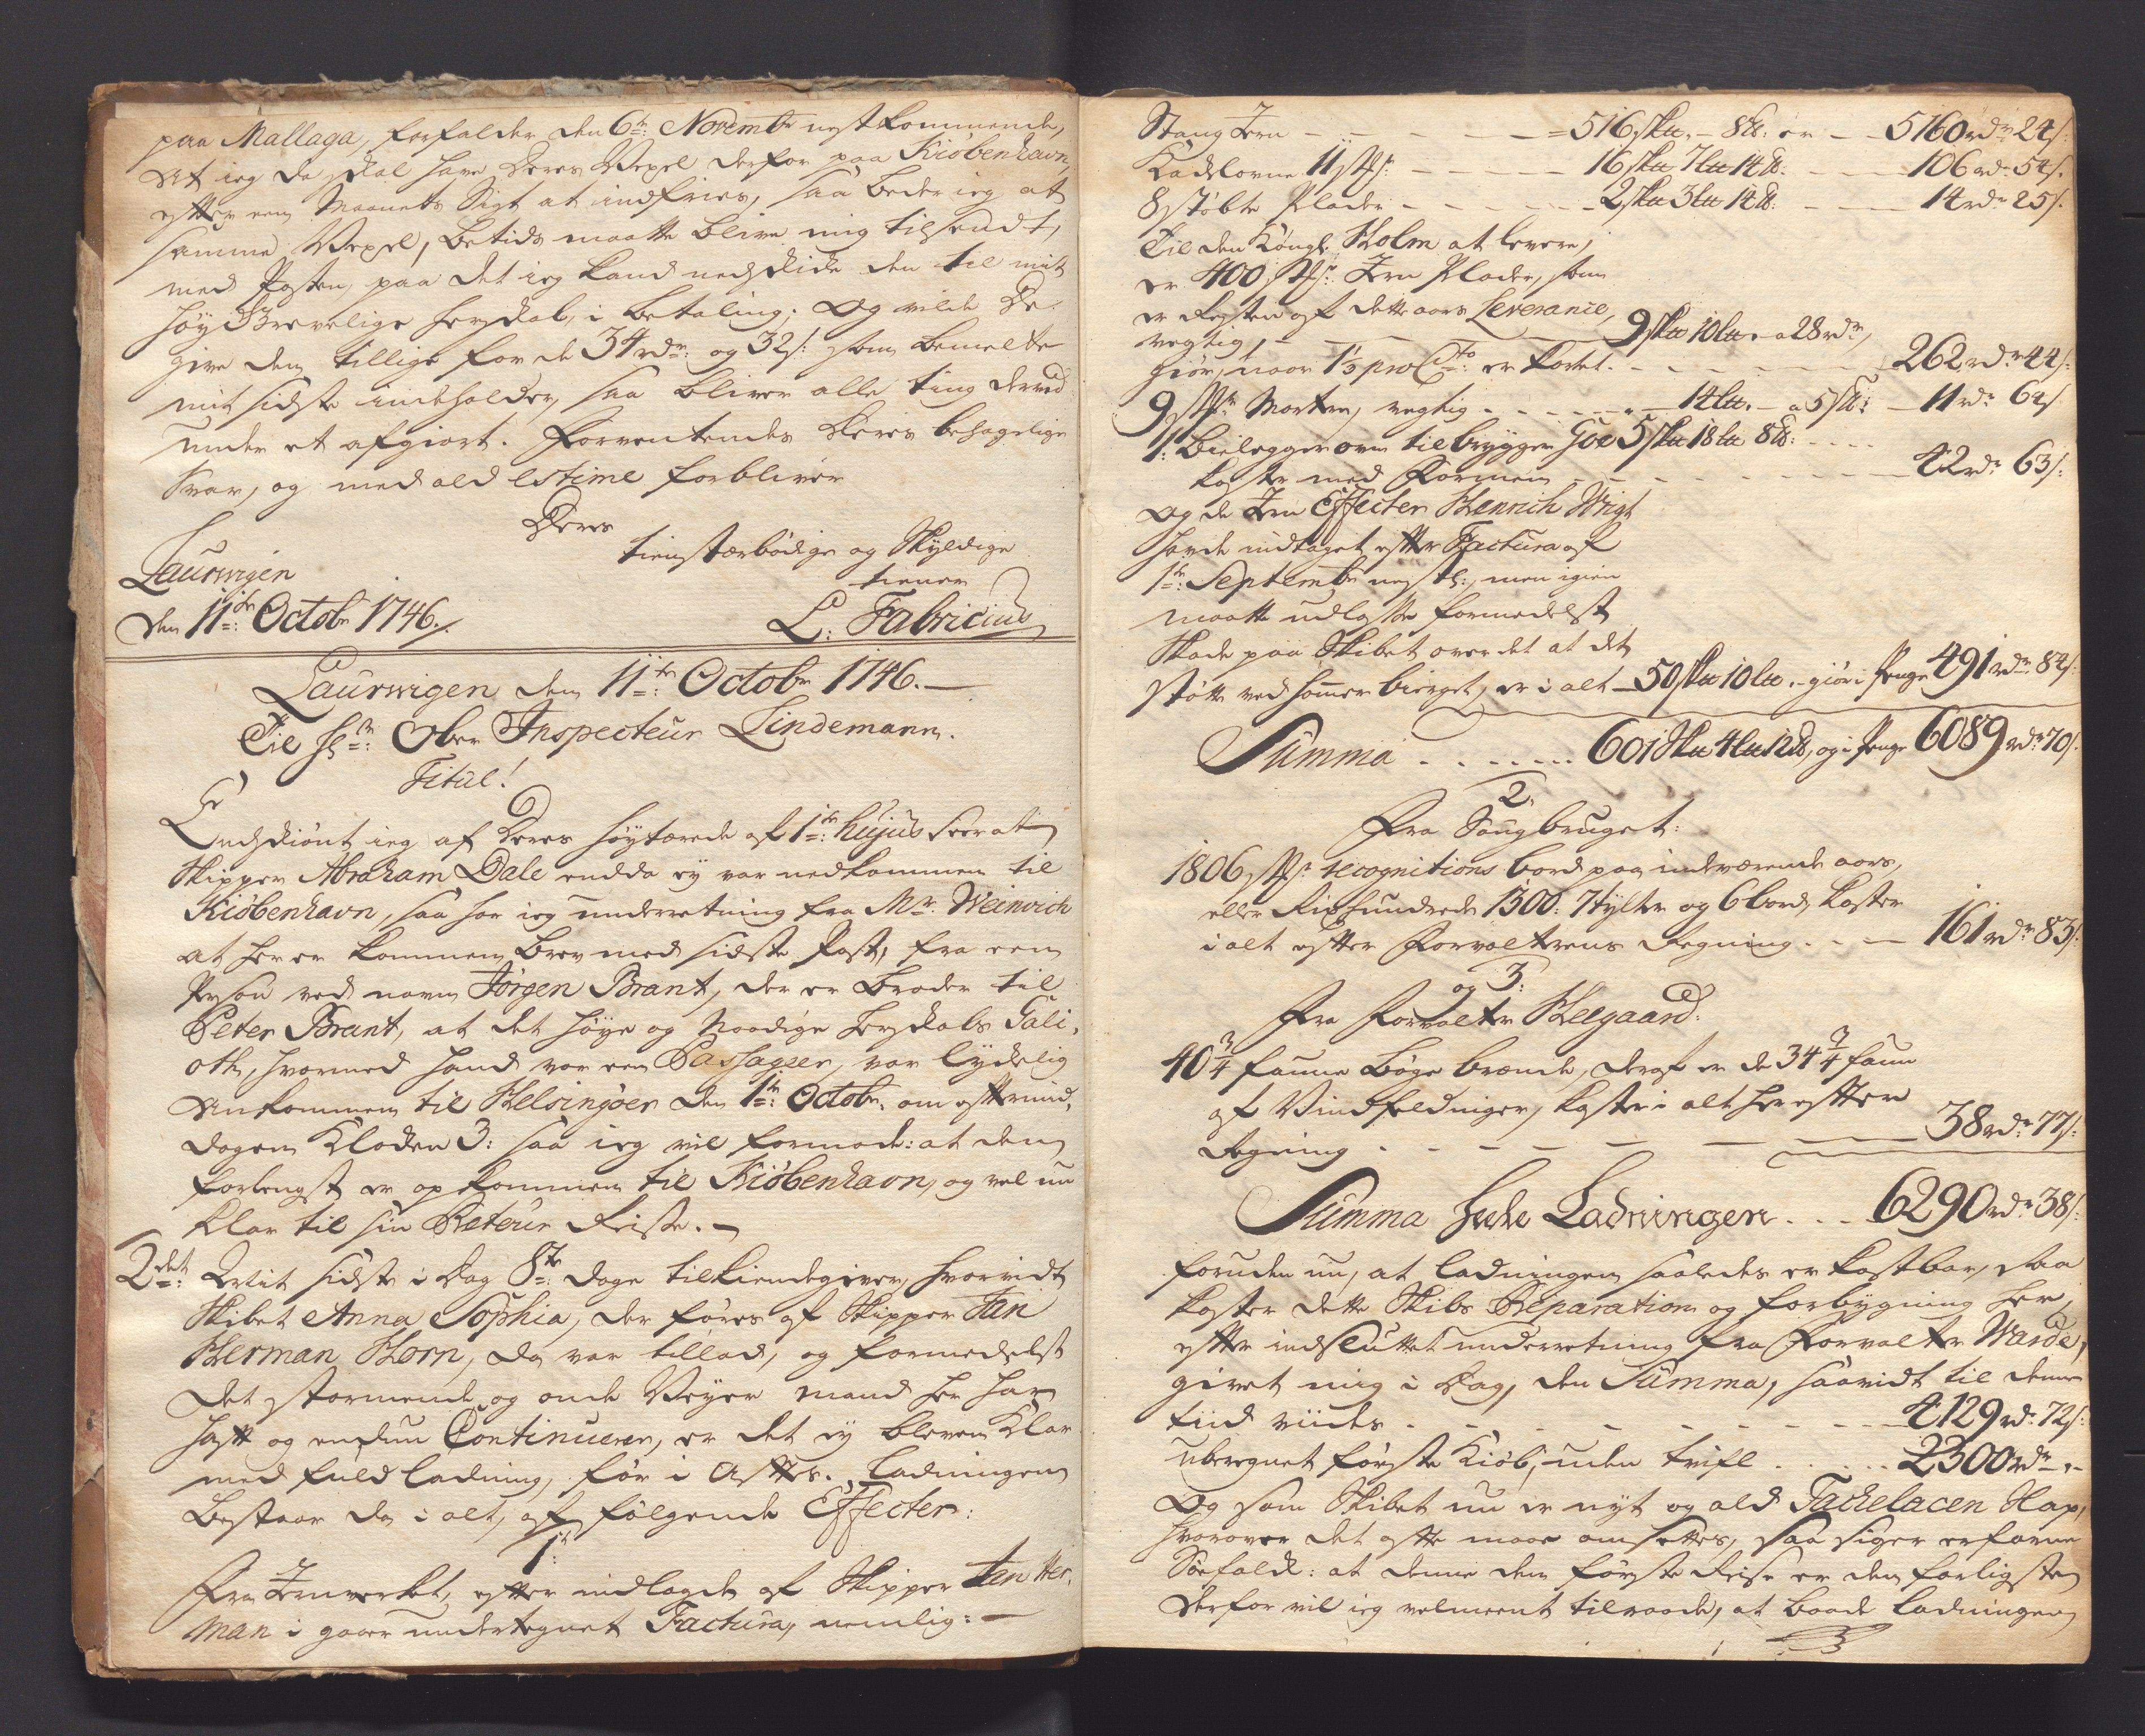 paa Mallaga, forfalder den 6te: Novembr nestkommende,
At ieg da skal have Deres Vexel derfor paa Kiöbenhavn,
efter een Maanets Sigt at indfries, saa beder ieg at
samme Vexel, betids maatte blive mig tilsendt,
med Posten, paa det ieg kand nedskicke den til mit
höy Grevelige herskab, i betaling; Og vilde De
give den tillige for de 34 rdr: og 32 s: som bemelte
mit sidste indeholder, saa bliver alle ting derved
under et afgiort. Forventendes Deres behagelige
Svar, og med ald estime forbliver
Deres
tienstærbödige og Skyldige
tiener
Laurwigen
den 11te: Octobr 1746.
L: Fabricius
Laurwigen den 11te: Octobr 1746.
Til Hr: Ober Inspecteur Lindemann.
Titul!
Endskiönt ieg af Deres höytærede af 1te: hujus seer at
Skipper Abraham Dale endda ey var nedkommen til
Kiöbenhavn, saa har ieg underretning fra Mr. Weinwich
at her er kommen brev med sidste Post, fra een
Person ved navn Jörgen Brant, der er broder til
Peter Brant, at det höye og Naadige herskabs Gali,
oth, hvormed hand var een Passageer, var lyckelig
ankommen til Helsingöer den 1te: Octobr. om eftermid,
dagen Klocken 3: saa ieg vil formode: at den
forlengst er op kommen til Kiöbenhavn, og vel nu
klar til sin Reteur Reise. —
2det: Mit sidste i dag 8te: dage tilkiendegiver, hvorvidt
Skibet Anna Sophia, der föres af Skipper Jan
Herman Horn, da var tillad, og formedelst
det stormende og onde Veyer mand her har
haft og endnu Continuerer, er det ey bleven klar
med fuld ladning, för i Aftes. Ladningen
bestaar da i alt, af fölgende Effecter:
1te:
Fra Iernverket, efter indlagde af Skipper Jan Her,
man i gaar undertegnet Factura, nemlig: —
Stang Iern — 516 sk℔. — 8 ℔: er — 5160 rdr 24 s:
Kackelovne 11 stk: — 16 sk℔ 7 L℔ 14 ℔. — 106 rdr 54 s.
8 stöbte Plader — 2 sk℔ 3 L℔ 14 ℔: — 14 rdr 25 s.
Til den Kongl: Holm at levere,
er 400 stkr. Iern Plader, som
er Resten af dette aars Leverance,
vegtig, — 9 sk℔ 10 L℔. a 28 rdr,
giör, naar 1½ pro Cto: er kortet. — 262 rdr 44 s:
9 stkr Mortere, vegtig — 14 L℔. — a 5 s ℔: — 11 rdr 64 s
1: Bielegger ovn til brygger Goe 5 sk℔ 18 L℔ 8 ℔: —
koster med Formen — 42 rdr 63 s:
Og de Iern Effecter Henrich Wrigt
havde indtaget efter Factura af
1te: Septembr nestl:, men igien
maatte udlosse formedelst
Skade paa Skibet over det at det
stötte ved hommer bierget, er i alt — 50 sk℔ 10 L℔. — giör i Penge 491 rdr 84 s:
Summa . . . . . . . 601 Sk℔ 4 L℔ 12 ℔, og i Penge 6089 rdr 70 s.
2.
Fra Saugbruget:
1806 stk: recognitions bord paa indværende aars,
eller Rixhundrede 1500: 7 tylter og 6 bord, koster
i alt efter Forvalterens Regning . — — 161 rdr 83 s:
og 3:
Fra Forvalter Heegaard:
40¾ faune böge brænde, deraf er de 34¾ faun
af Vindfeldninger, koster i alt her efter
Regning — — 38 rdr 77 s:
Summa heele Ladningen . . . 6290 rdr 38 s:
foruden nu, at ladningen saaledes er kostbar, saa
koster dette Skibs Reparation og forbygning her,
efter indsluttet underretning fra Forvalter Warde,
givet mig i dag, den Summa, saavidt til denne
tiid viides — 4129 rdr 72 s:
uberegnet förste Kiöb, uden tvifl . . . . 2300 rdr —
Og som Skibet nu er nyt og ald Tackelacen Slap,
hvorover det ofte maae omsettes, saa siger erfarne
Söefolck: at denne den förste Reise er den farligste,
derfor vil ieg velmeent tilraade, at baade ladningen